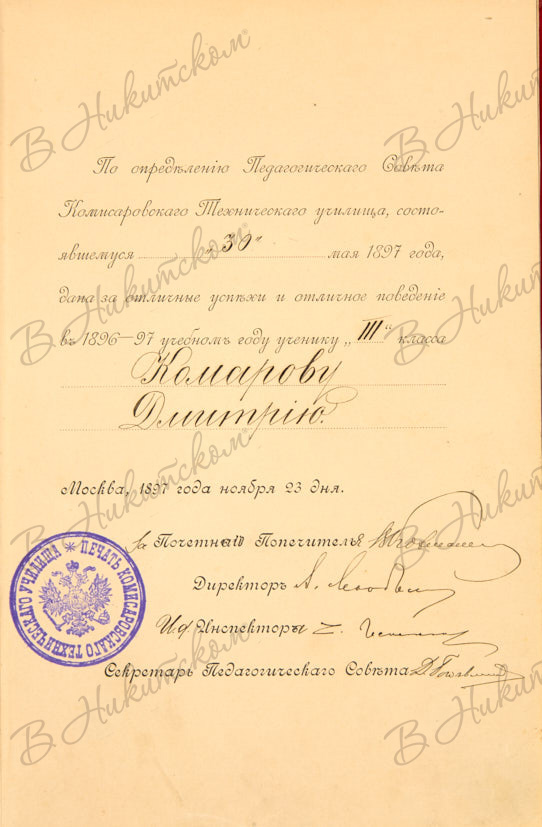 По опредѣленію Педагогическаго Совѣта
Комисаровскаго Техническаго училища, состо-
явшемуся „30“ мая 1897 года,
дана за отличные успѣхи и отличное поведеніе
въ 1896—97 учебномъ году ученику „III“ класса
Комарову
Дмитрію.
Москва, 1897 года ноября 23 дня.
За Почетнаго Попечителя
Директоръ А.
Ид Инспектора
Секретарь Педагогическаго Совѣта
ПЕЧАТЬ КОМИСАРОВСКАГО ТЕХНИЧЕСКАГО УЧИЛИЩА
В Никитском
В Никитском
В Никитском
В Никитском
В Никитском
В Никитском
В Никитском
В Никитском